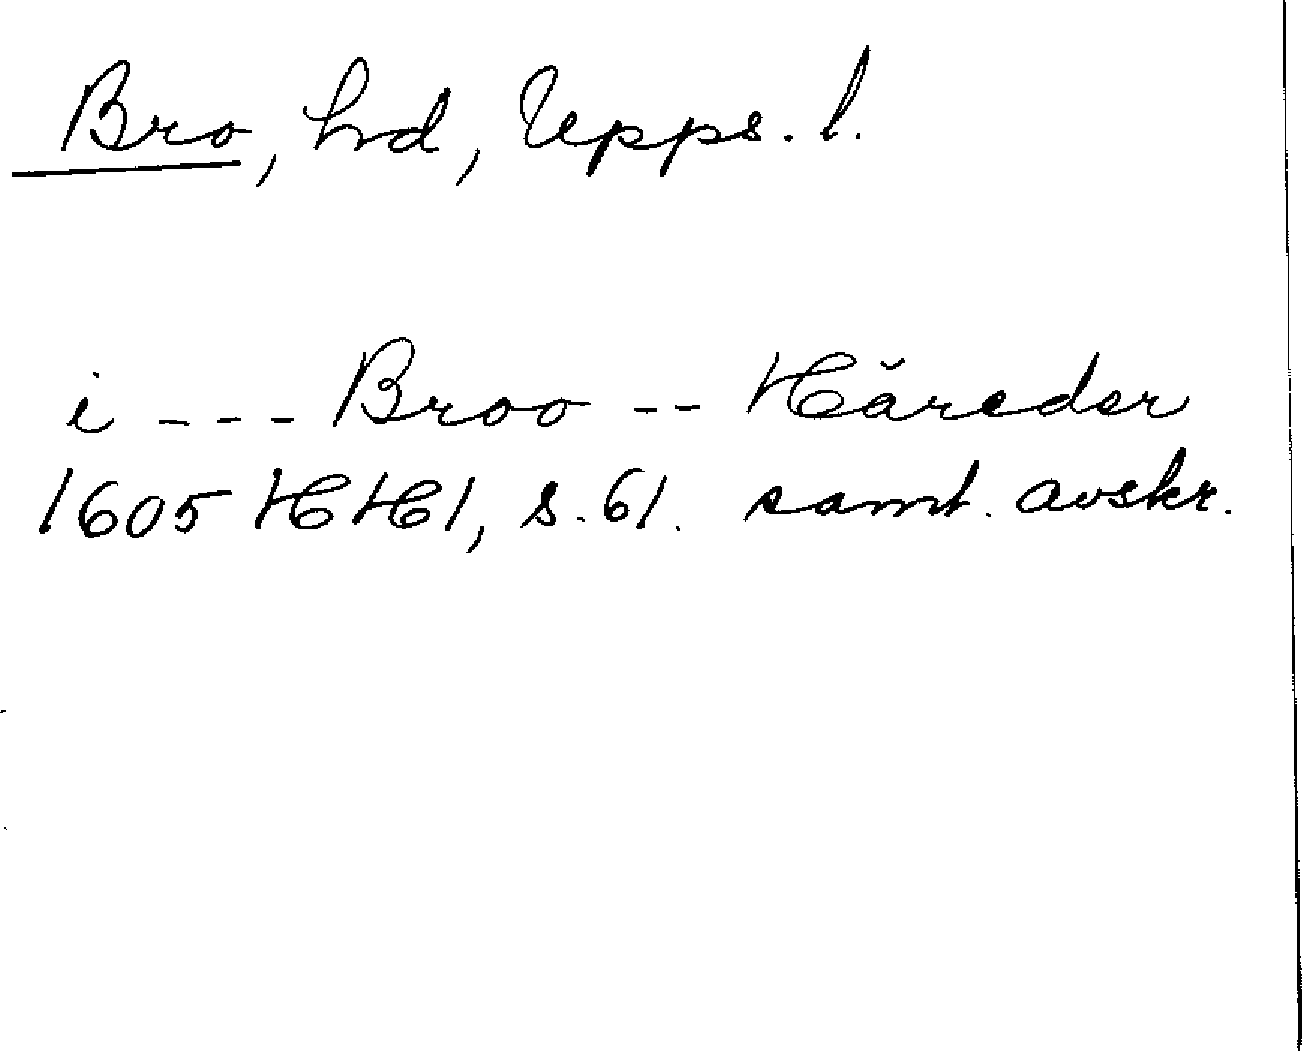 Bro, hd, Upps. l.
i - - - Broo - - Håreder
1605 HH1, s. 61. samt. avskr.